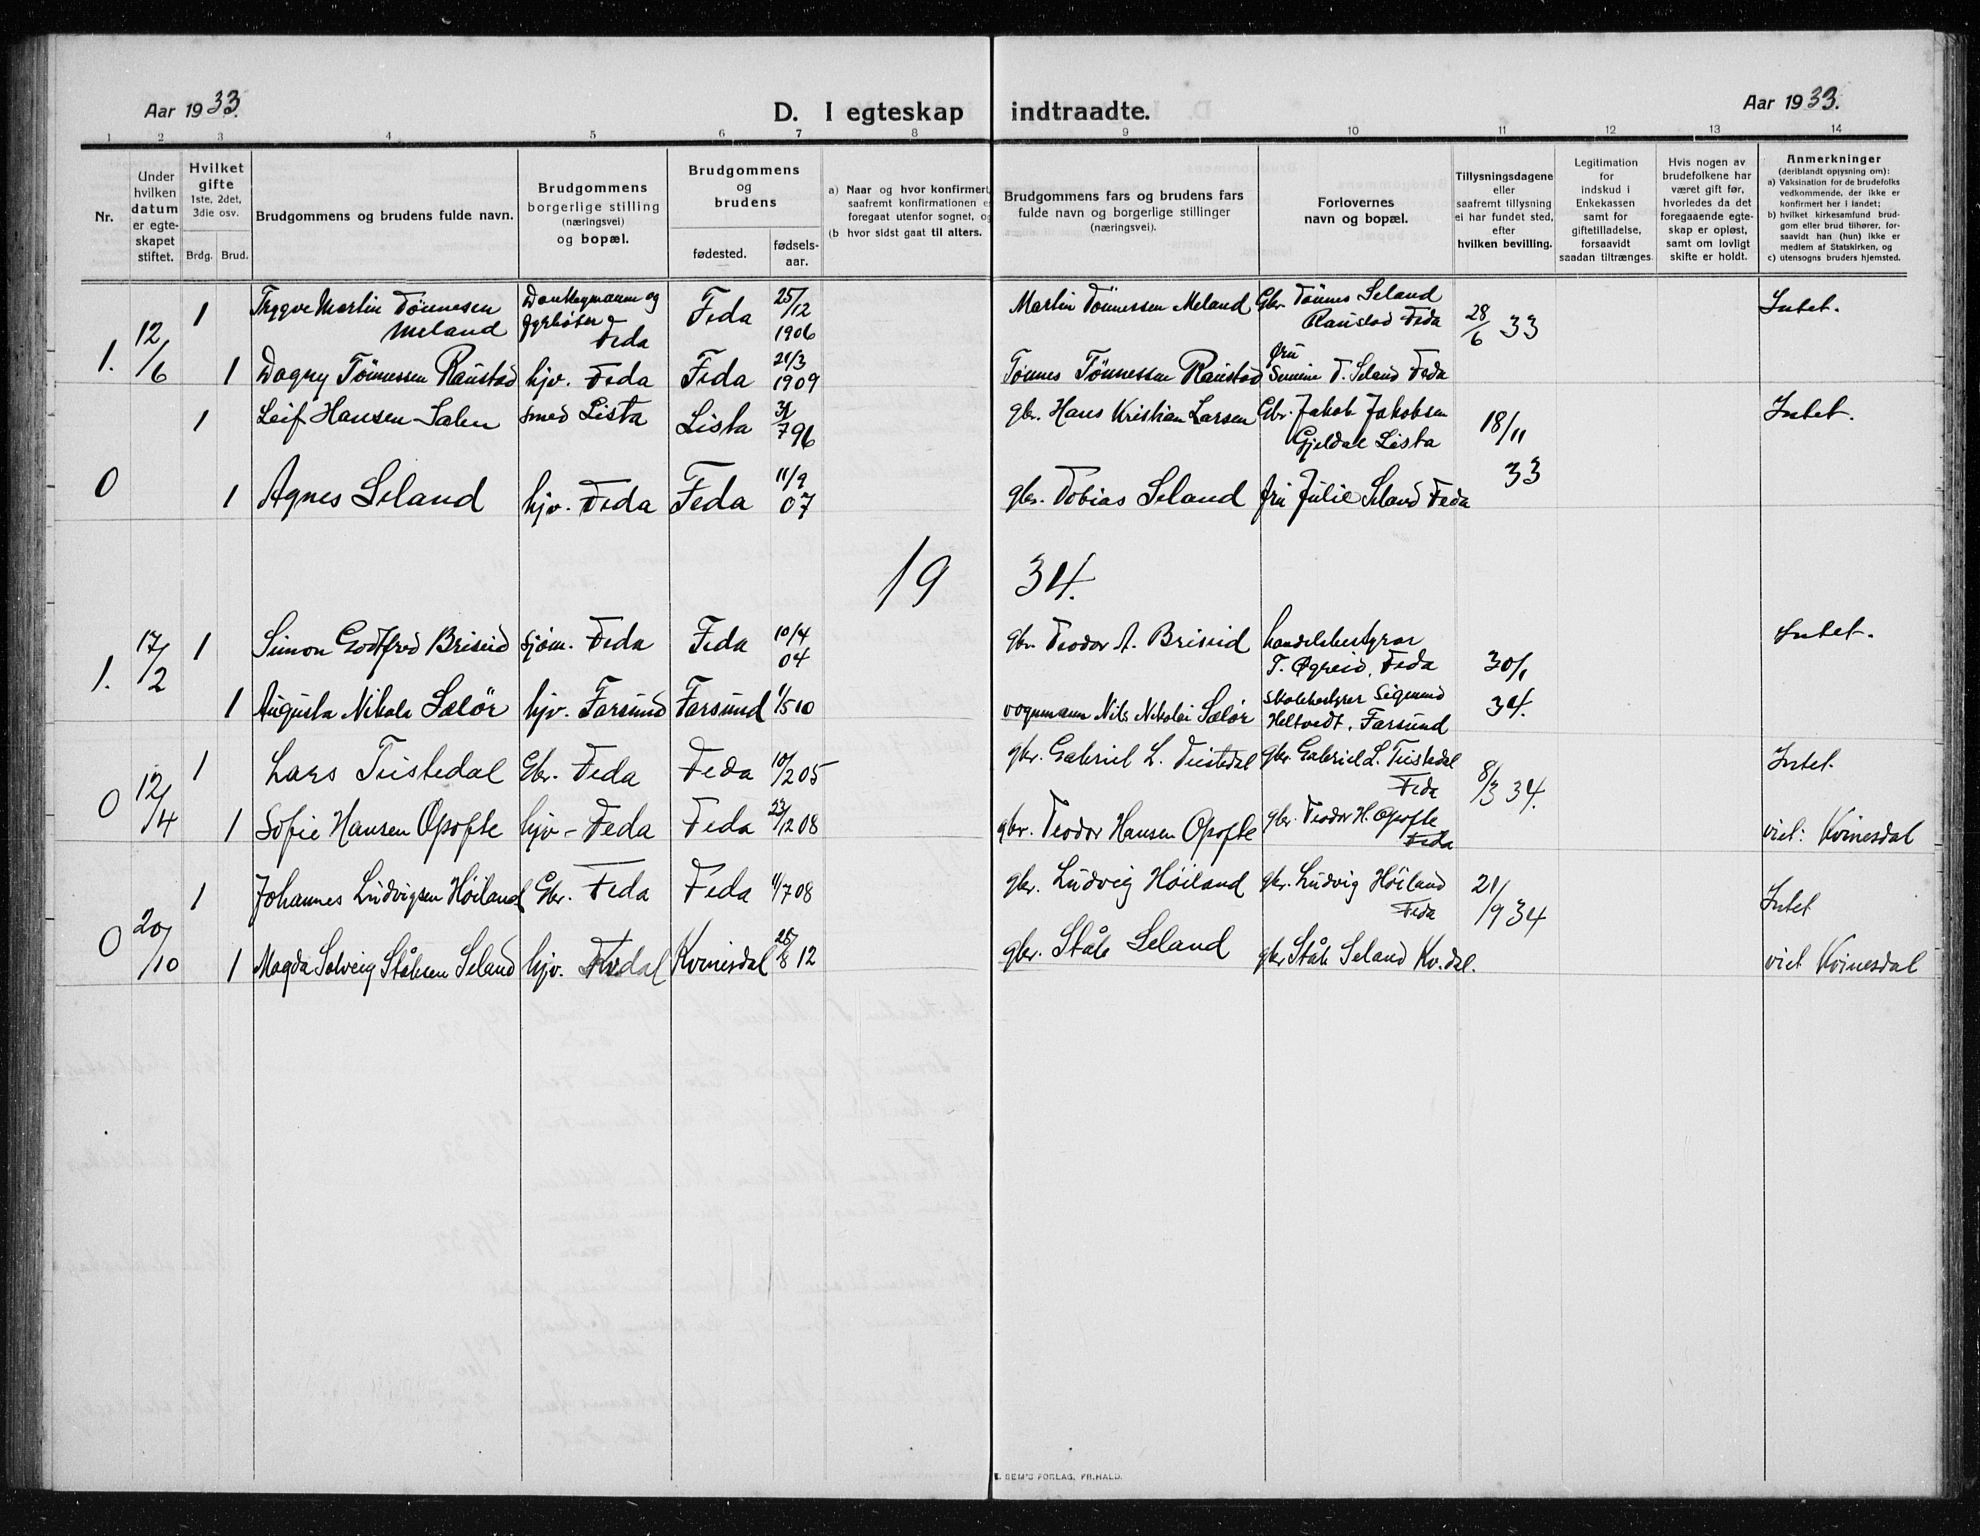 Aar 1933.
D. I egteskap indtraadte.
Aar 1933.
1 2 3 4 5 6 7 8 9 10 11 12 13 14
Nr.
Under hvilken datum er egteskapet stiftet.
Hvilket gifte 1ste, 2det, 3die osv.
Brdg. Brud.
Brudgommens og brudens fulde navn.
Brudgommens borgerlige stilling (næringsvei) og bopæl.
Brudgommens og brudens
fødested.
fødselsaar.
a) Naar og hvor konfirmert, saafremt konfirmationen e foregaat utenfor sognet, og
(b hvor sidst gaat til alters.
Brudgommens fars og brudens fars fulde navn og borgerlige stillinger (næringsvei).
Forlovernes navn og bopæl.
Tillysningsdagene eller saafremt tillysning ei har fundet sted, efter hvilken bevilling.
Legitimation for indskud i Enkekassen samt for giftetilladelse, forsaavidt saadan tiltrænges.
Hvis nogen av brudefolkene har været gift før, hvorledes da det foregaaende egteskap er opløst, samt om lovligt skifte er holdt.
Anmerkninger (deriblandt opjysning om):
a) Vaksination for de brudefolks vedkommende, der ikke er konfirmert her i landet;
b) hvilket kirkesamfund brudgom eller brud tilhører, forsaavidt han (hun) ikke er medlem af Statskirken, og
c) utensogns bruders hjemsted.
1. 12/6 1 Trygve Martin Tönnesen Meland Feda Feda 25/12 1906 Martin Tönnessen Meland Gbr. Tönnes Seland Raustad Feda 28/6 33 Intet.
1 Dagny Tönnessen Raustad hjv. Feda Feda 21/3 1909 Tönnes Tönnessen Raustad T. Seland Feda
1 Leif Hansen Salen smed Lista Lista 31/7 96 gbr. Hans Kristian Larsen Gbr. Jakob Jakobsen Gjeldal Lista 18/11 33 Intet.
0 1 Agnes Seland hjv. Feda Feda 11/9 07 gbr. Tobias Seland fru Julie Seland Feda
1934.
1. 17/2 1 Simon Godtfred Briseid sjöm. Feda Feda 10/4 04 gbr. Teodor A. Briseid handelsbestyrar T. Øgreid, Feda 30/1 34. Intet.
1 Augusta Nikola Sælör hjv. Farsund Farsund 1/5 10 vognmann Nils Nikolai Sælör Skolebestyrer Sigmund Heltvedt, Farsund
0 12/4 1 Lars Teistedal Gbr. Feda Feda 10/2 05 gbr. Gabriel L. Teistedal gbr. Gabriel L. Teistedal Feda 8/3 34. Intet.
1 Sofie Hansen Opofte hjv - Feda Feda 23/12 08 gbr. Teodor Hansen Opofte gbr. Teodor H. Opofte Feda viet: Kvinesdal
0 20/10 1 Johannes Ludvigsen Höiland Gbr. Feda Feda 1/7 08 gbr. Ludvig Höiland gbr. Ludvig Höiland Feda 21/9 34 Intet
1 Magda Solveig Ståhsen Seland hjv. Kvinesdal 12 gbr. Ståle Seland gbr Ståle Seland Kv.dal. viet Kvinesdal
E. SEM'S FORLAG, FR.HALD.